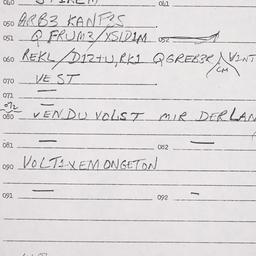 040
050 ARB3 KANT3S
051 Q FRUM3/XSID1M 052
060 REKL/D1Z+U,RK1 QGREB3K/VINT
CM
070 VEST
071
072
080 VENDU VOLST MIR DERLAN
081 082
090 VOLT1XEMONGETON
091 092